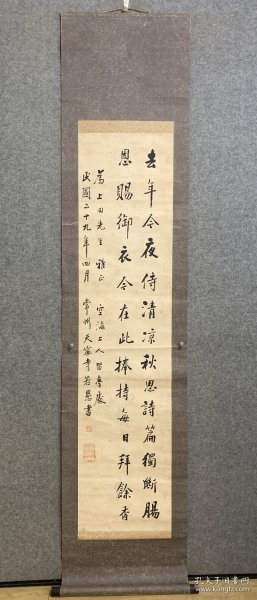 去年今夜侍清凉秋思詩篇獨斷腸
恩賜御衣今在此捧持每日拜餘香
為上田先生雅正 空海上人留學處
民國二十九年四月 常州天寧寺若愚書
孔夫子旧书网